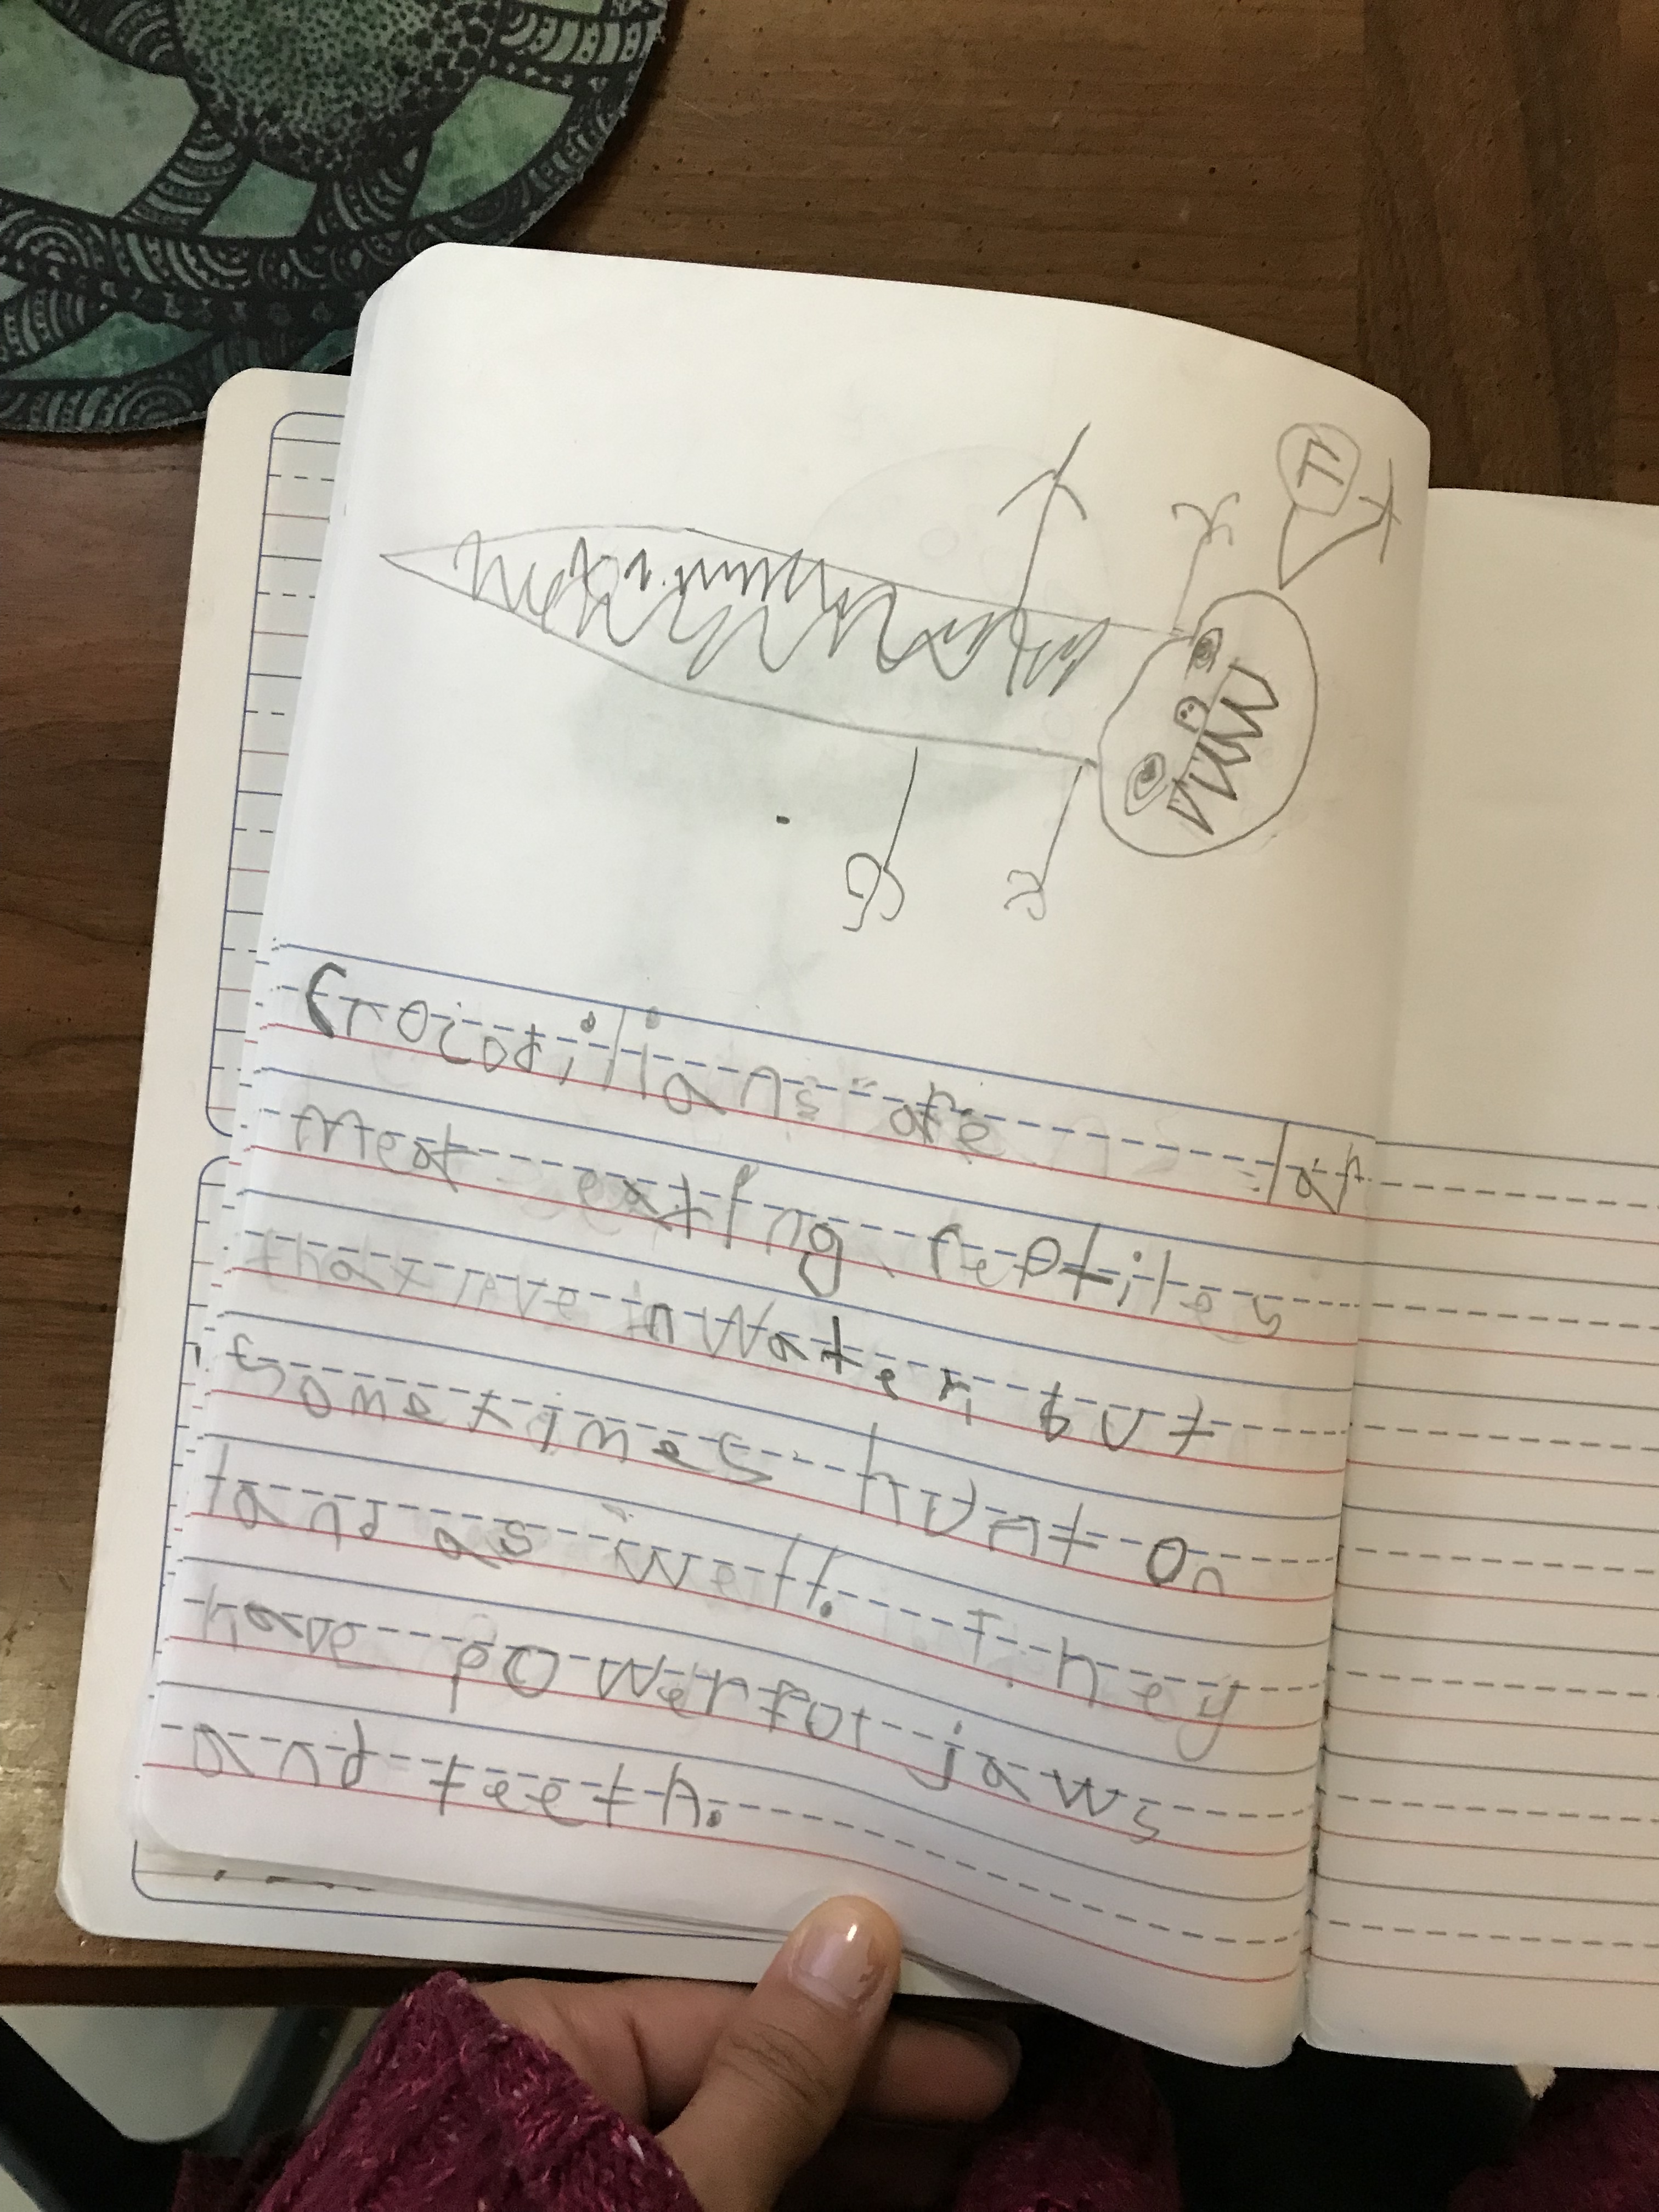 F
Crocodilians are lar
meat eating reptiles
that live in water, but
sometimes hunt on
land as well. They
have powerful jaws
and teeth.